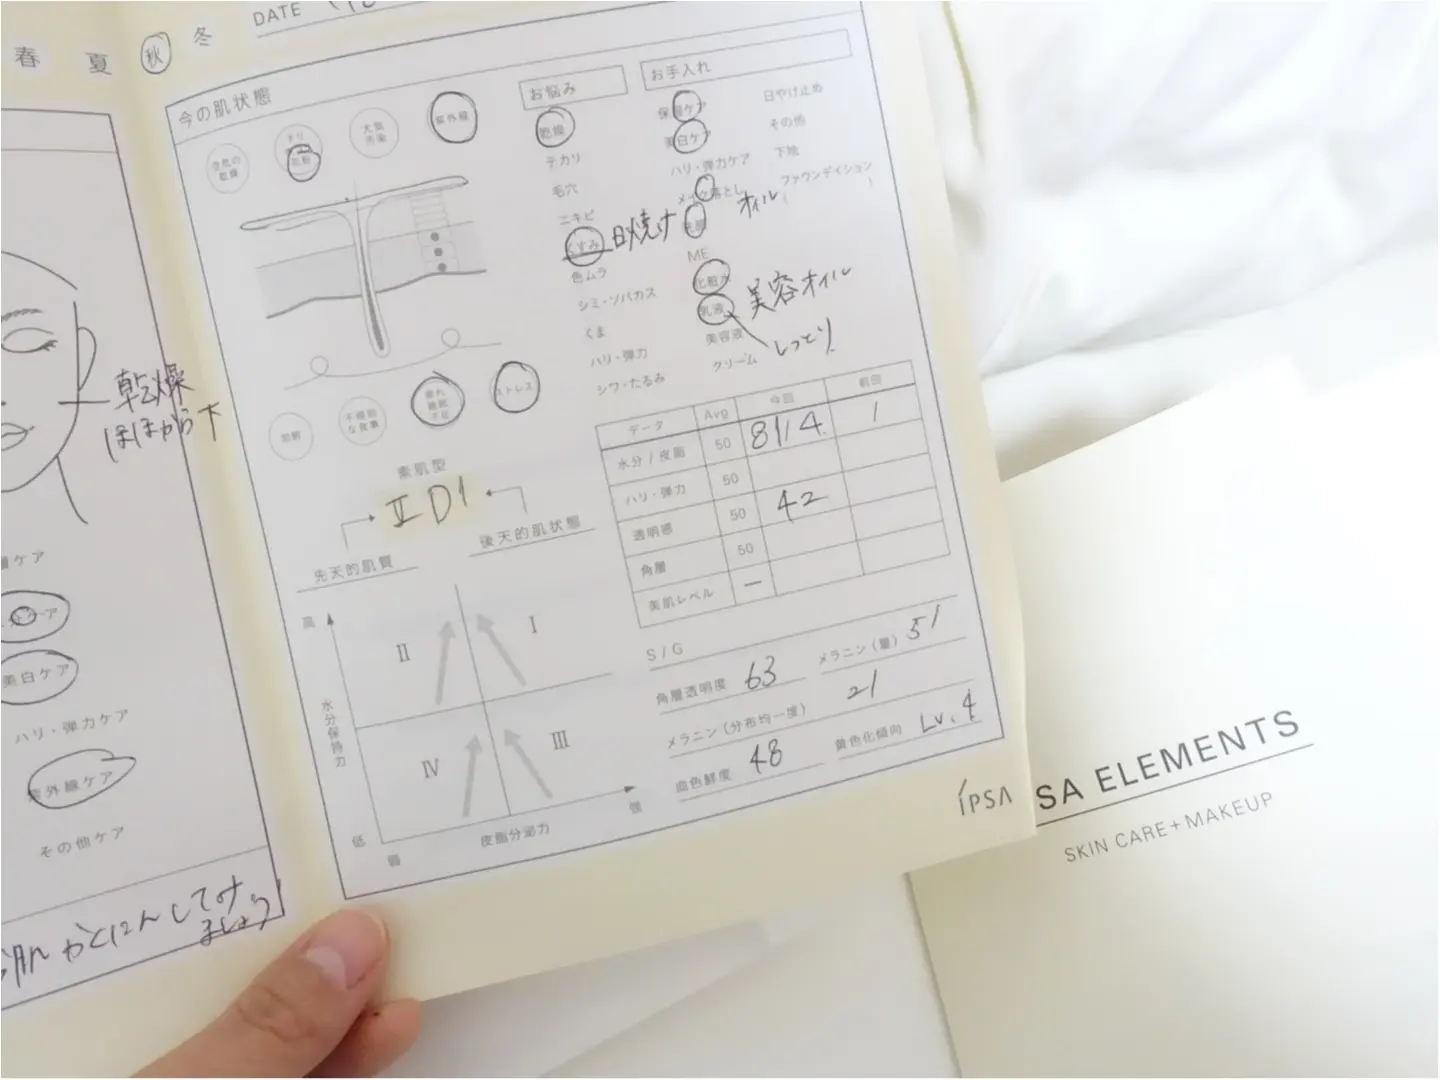 春 夏 秋 冬
DATE
今の肌状態
空気の
乾燥
チリ
花粉
大気
汚染
紫外線
お悩み
乾燥
テカリ
毛穴
ニキビ
くすみ 日焼け
色ムラ
シミ・ソバカス
くま
ハリ・弾力
シワ・たるみ
お手入れ
保湿ケア
美白ケア
ハリ・弾力ケア
メイク落とし オイル
洗顔
ME
化粧水
乳液 美容オイル
しっとり
美容液
クリーム
日やけ止め
その他
下地
ファウンデイション
( )
不規則
な食事
疲れ
睡眠
不足
ストレス
素肌型
II D1
先天的肌質
後天的肌状態
高
水分保持力
低
弱
皮脂分泌力
強
II
I
IV
III
データ Avg 今回 前回
水分 / 皮脂 50 81/4 /
ハリ・弾力 50
透明感 50 42
角層 50
美肌レベル ー
S / G
角層透明度 63 メラニン(量) 51
メラニン(分布均一度) 21
血色鮮度 48 黄色化傾向 Lv. 4
IPSA
乾燥
ほほから下
層ケア
美白ケア
ハリ・弾力ケア
紫外線ケア
その他ケア
肌 かくにんしてみ
ましょう
SA ELEMENTS
SKIN CARE+MAKEUP